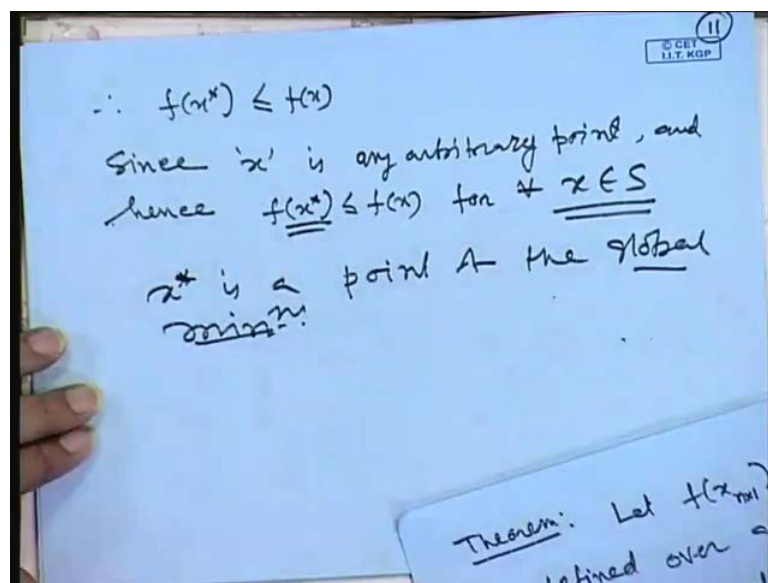 11
© CET
I.I.T. KGP
∴ f(x*) ≤ f(x)
Since 'x' is any arbitrary point, and
hence f(x*) ≤ f(x) for ∀ x ∈ S
x* is a point of the global
minᵐ.
Theorem: Let f(x_{n×1})
defined over a